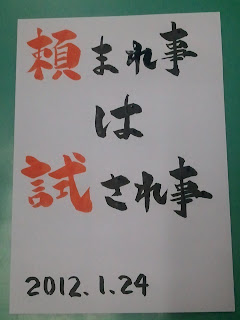 頼まれ事
は
試され事
2012.1.24